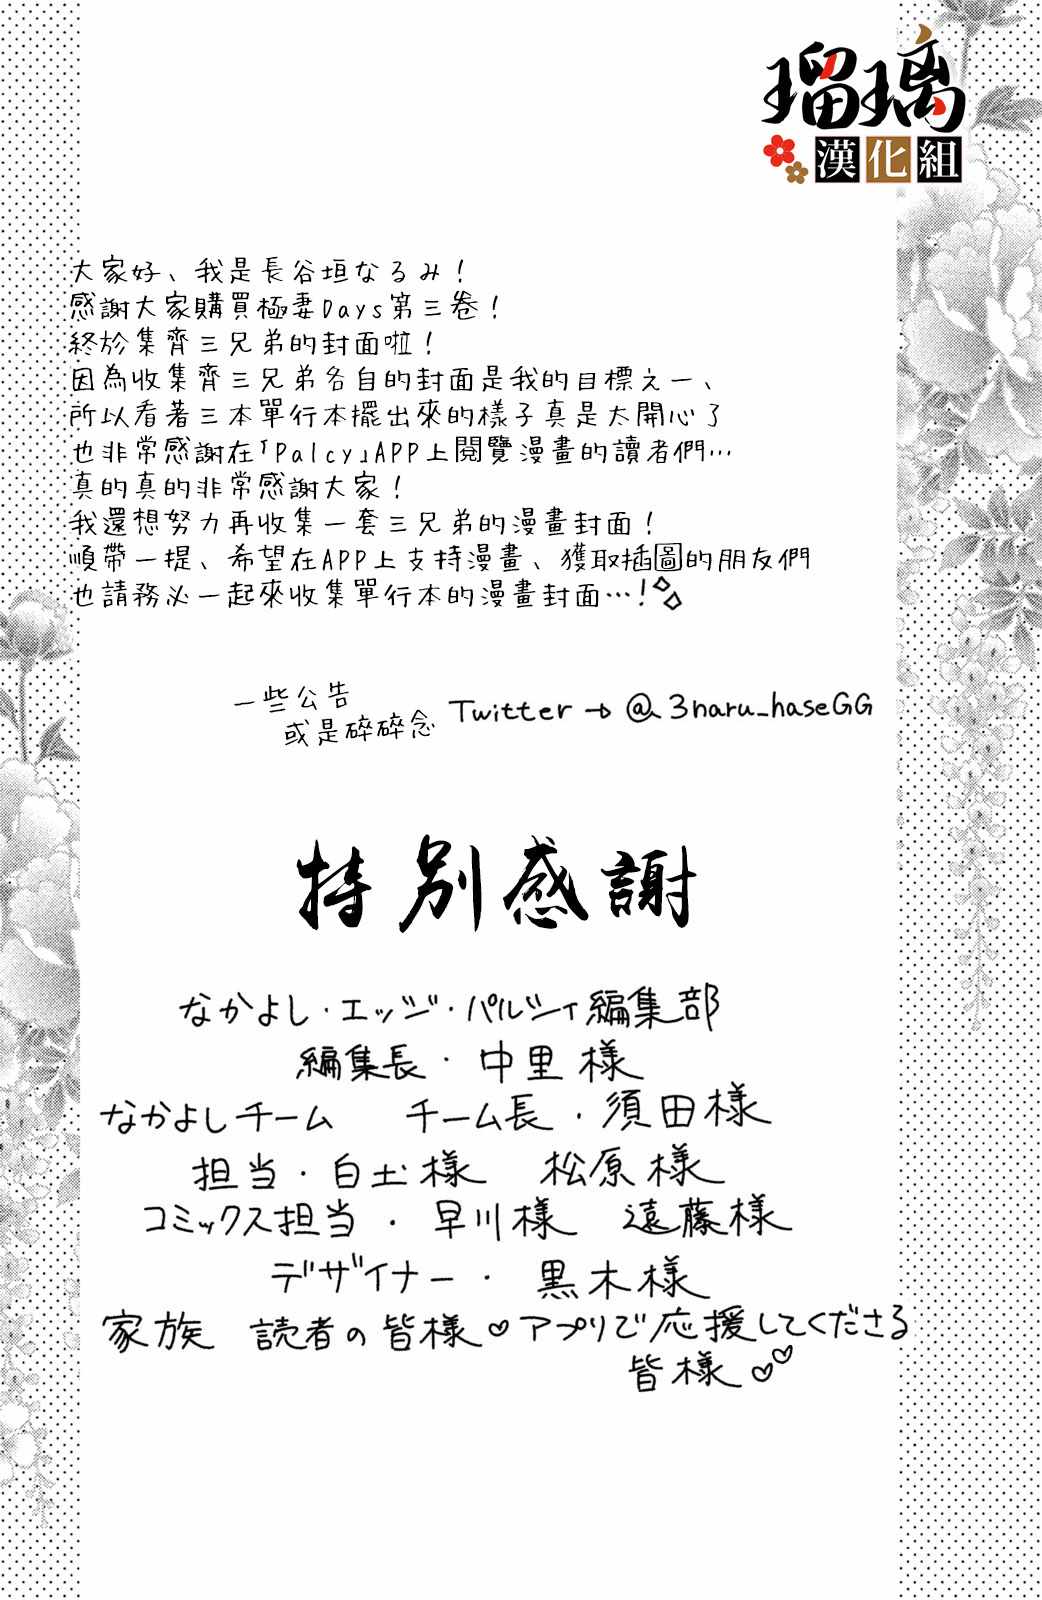 瑠璃
漢化組
大家好、我是長谷垣なるみ！
感謝大家購買極妻Days第三卷！
終於集齊三兄弟的封面啦！
因為收集齊三兄弟各自的封面是我的目標之一、
所以看著三本單行本擺出來的樣子真是太開心了
也非常感謝在「Palcy」APP上閱覽漫畫的讀者們…
真的真的非常感謝大家！
我還想努力再收集一套三兄弟的漫畫封面！
順帶一提、希望在APP上支持漫畫、獲取插圖的朋友們
也請務必一起來收集單行本的漫畫封面…！
一些公告
或是碎碎念 Twitter→@3naru_haseGG
特別感謝
なかよし・エッジ・パルシィ編集部
編集長・中里様
なかよしチーム チーム長・須田様
担当・白土様 松原様
コミックス担当・早川様 遠藤様
デザイナー・黒木様
家族 読者の皆様♡アプリで応援してくださる
皆様♡♡